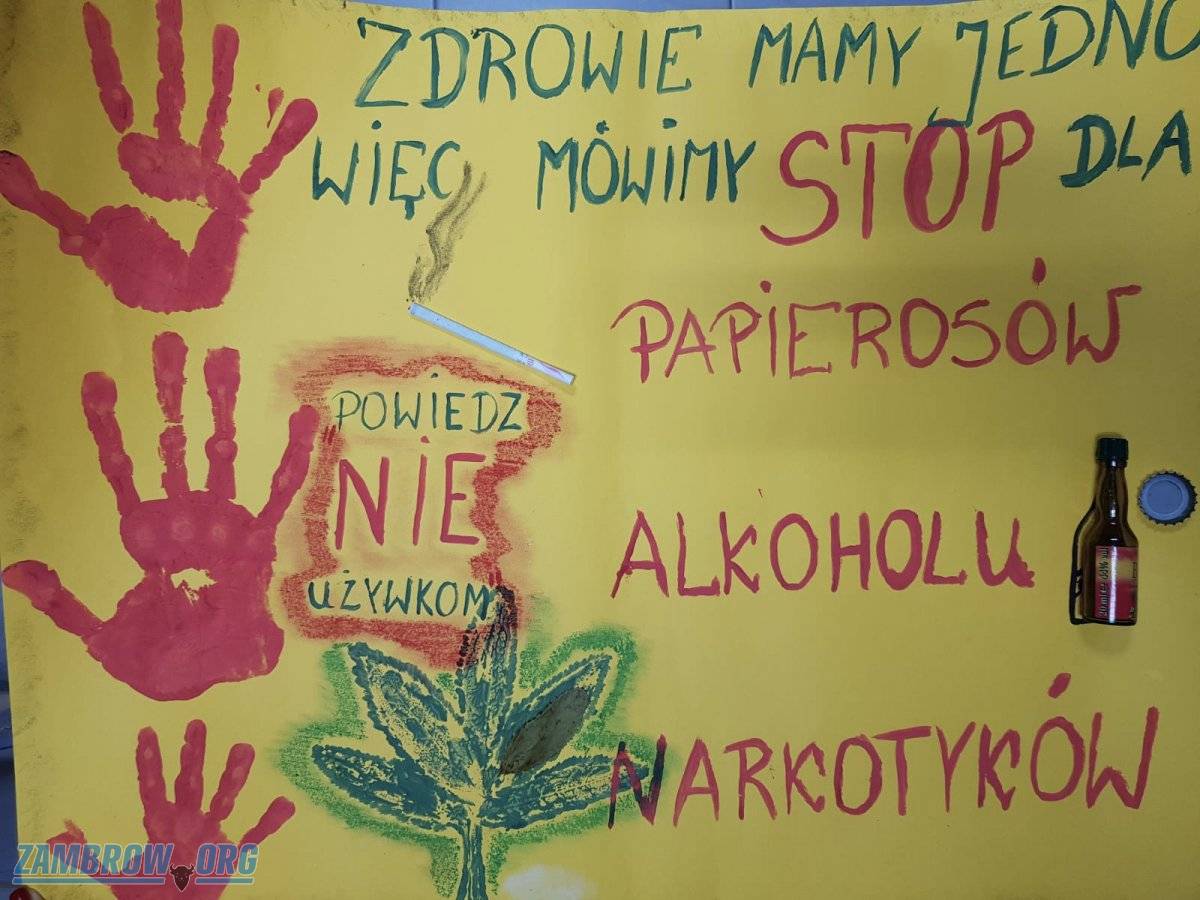 ZDROWIE MAMY JEDNO
WIĘC MÓWIMY STOP DLA
PAPIEROSÓW
POWIEDZ
NIE
UŻYWKOM
ALKOHOLU
NARKOTYKÓW
ZAMBROW.ORG